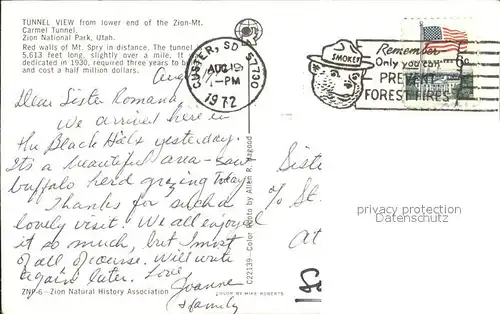 TUNNEL VIEW from lower end of the Zion-Mt.
Carmel Tunnel.
Zion National Park, Utah.
Red walls of Mt. Spry in distance. The tunnel
5,613 feet long, slightly over a mile. It
dedicated in 1930, required three years to b
and cost a half million dollars.
CUSTER, SD 57730
AUG 19
PM
1972
SMOKEY
Remember
Only you can
PREVENT
FOREST FIRES
6c
Aug
Dear Sister Romana,
We arrived here in
the Black Hills yesterday.
Its a beautiful area - saw
buffalo herd grazing today.
Thanks for such a
lovely visit. We all enjoyed
it so much, but I most
of all of course. Will write
again later. Love,
Joanne
& family
Siste
% St.
At
ZNP-6 - Zion Natural History Association
COLOR BY MIKE ROBERTS
C22139 - Color Photo by Allen R. Hagood
privacy protection
Datenschutz